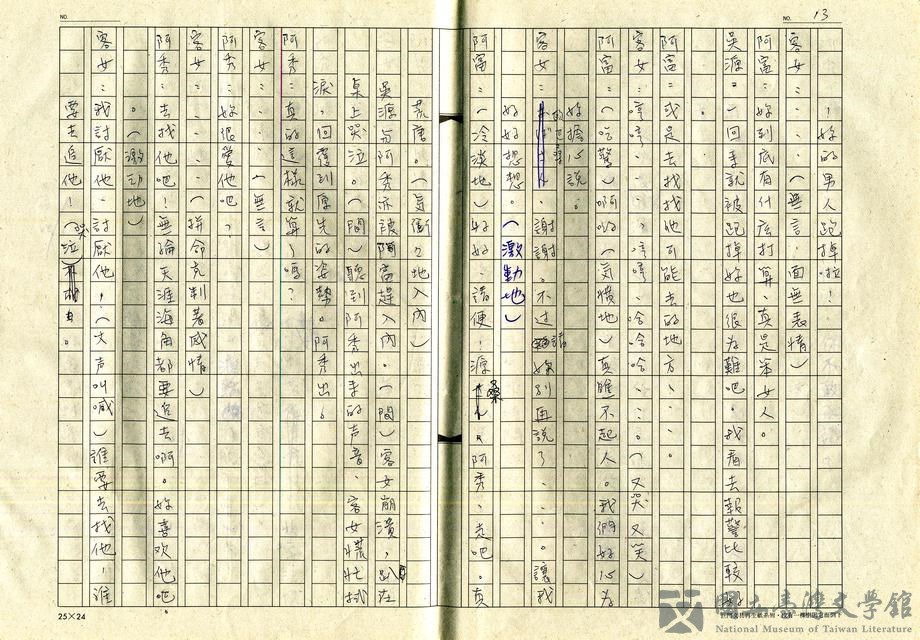 NO. 13
！好的男人跑掉啦！
客女：（無言，面無表情）
阿富：妳到底有什麼打算、真是笨女人。
吳源：一回手就被跑掉妳也很為難吧。我看去報警比較
阿富：或是去找找他可能去的地方、、。
客女：哼哼、、、哼哼、哈哈哈、、：。（又哭又笑）
阿富：（吃驚）啊啲（氣憤地）真瞧不起人。我們好心為
妳擔心說。
客女：謝謝。不過請妳別再說了、、。讓我
好好想想。（激動地）
阿富：（冷淡地）好好、請便！源桑、阿秀、走吧。真
荒唐。（氣衝衝地入內）
吳源與阿秀亦被阿富趕入內。（間）客女崩潰，趴在
桌上哭泣。（間）聽到阿秀出來的声音、客女慌忙拭
淚，回復到原先的姿勢。阿秀出。
阿秀：真的這樣就算了嗎？
客女：、、（無言）
阿秀：妳很愛他吧，
客女：、、（拼命克制著感情）
阿秀：去找他吧！無論天涯海角都要追去啊。妳喜欢他吧。
。（激動地）
客女：我討厭他、討厭他，（大声叫喊）誰要去找他，誰
要去追他！（哭泣）
NO.
25×24
國立台灣文學館
National Museum of Taiwan Literature